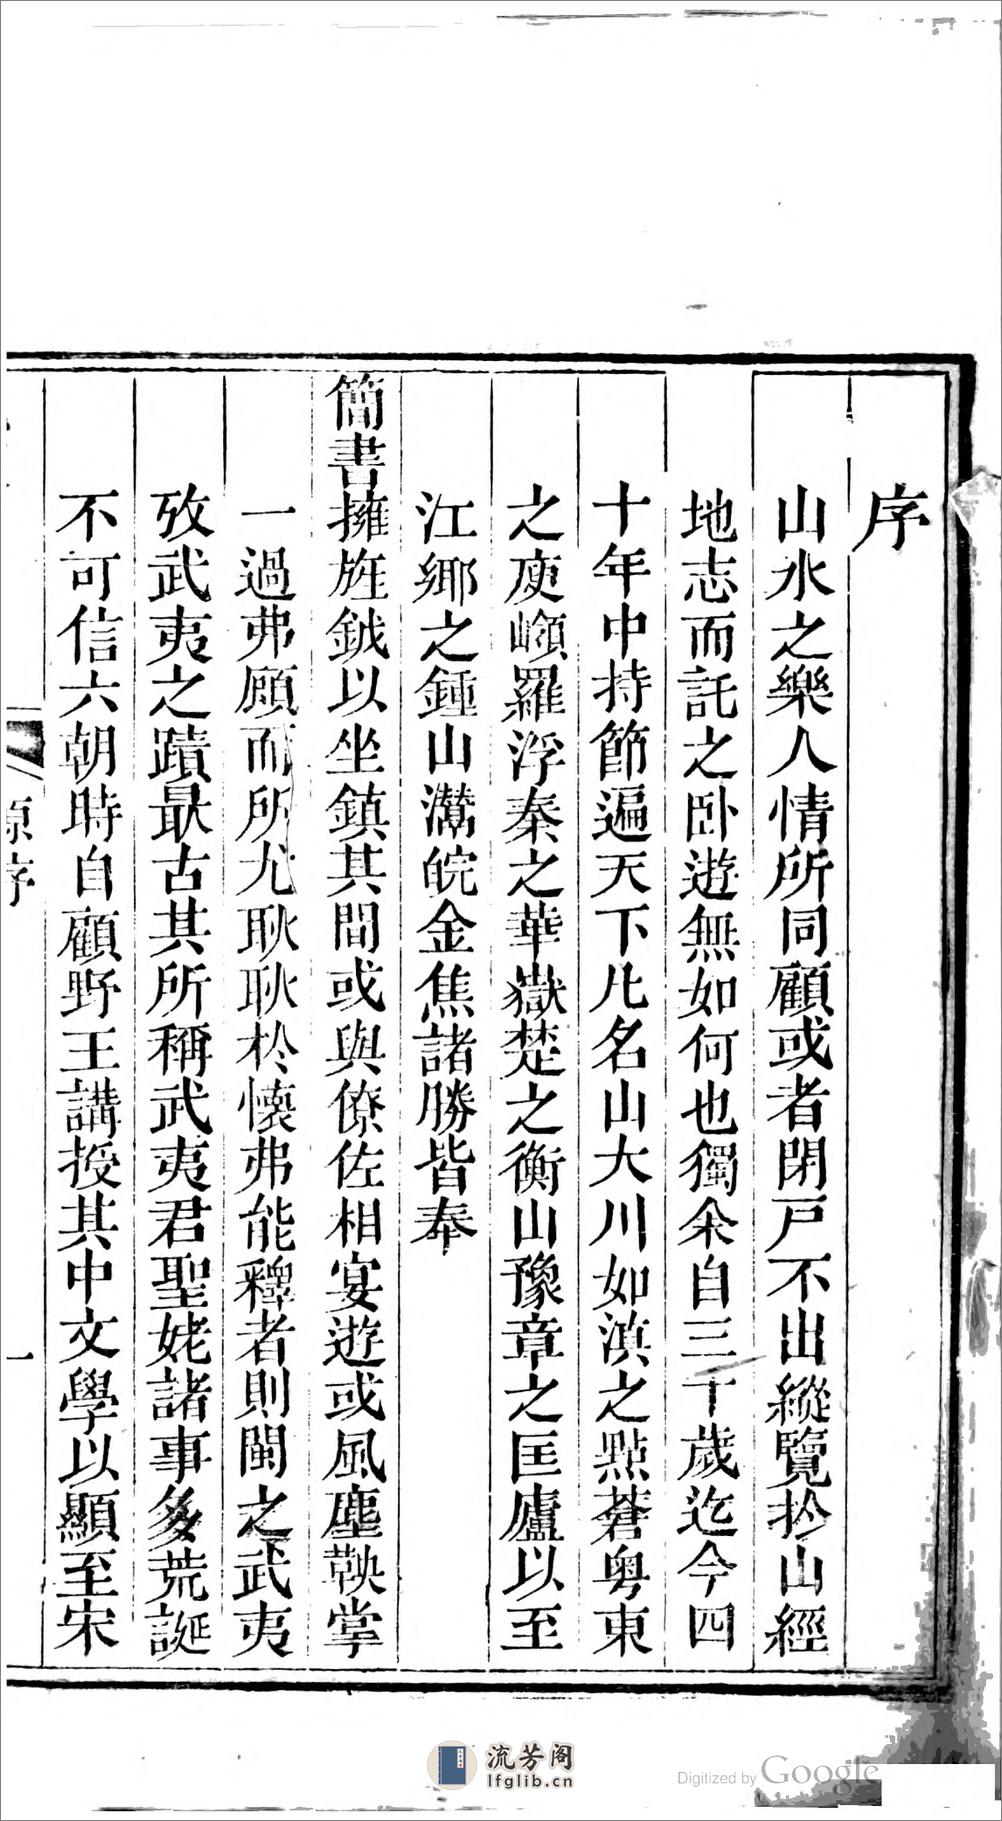 序
山水之樂人情所同顧或者閉戸不出縱覽抄山經
地志而託之卧遊無如何也獨余自三十歲迄今四
十年中持節遍天下凡名山大川如滇之點蒼粤東
之庾嶺羅浮秦之華嶽楚之衡山豫章之匡廬以至
江鄉之鍾山灊皖金焦諸勝皆奉
簡書擁旌鉞以坐鎮其間或與僚佐相宴遊或風塵鞅掌
一過弗願而所尤耿耿於懷弗能釋者則閩之武夷
攷武夷之蹟最古其所稱武夷君聖姥諸事多荒誕
不可信六朝時自顧野王講授其中文學以顯至宋
原序
一
流芳阁
lfglib.cn
Digitized by Google